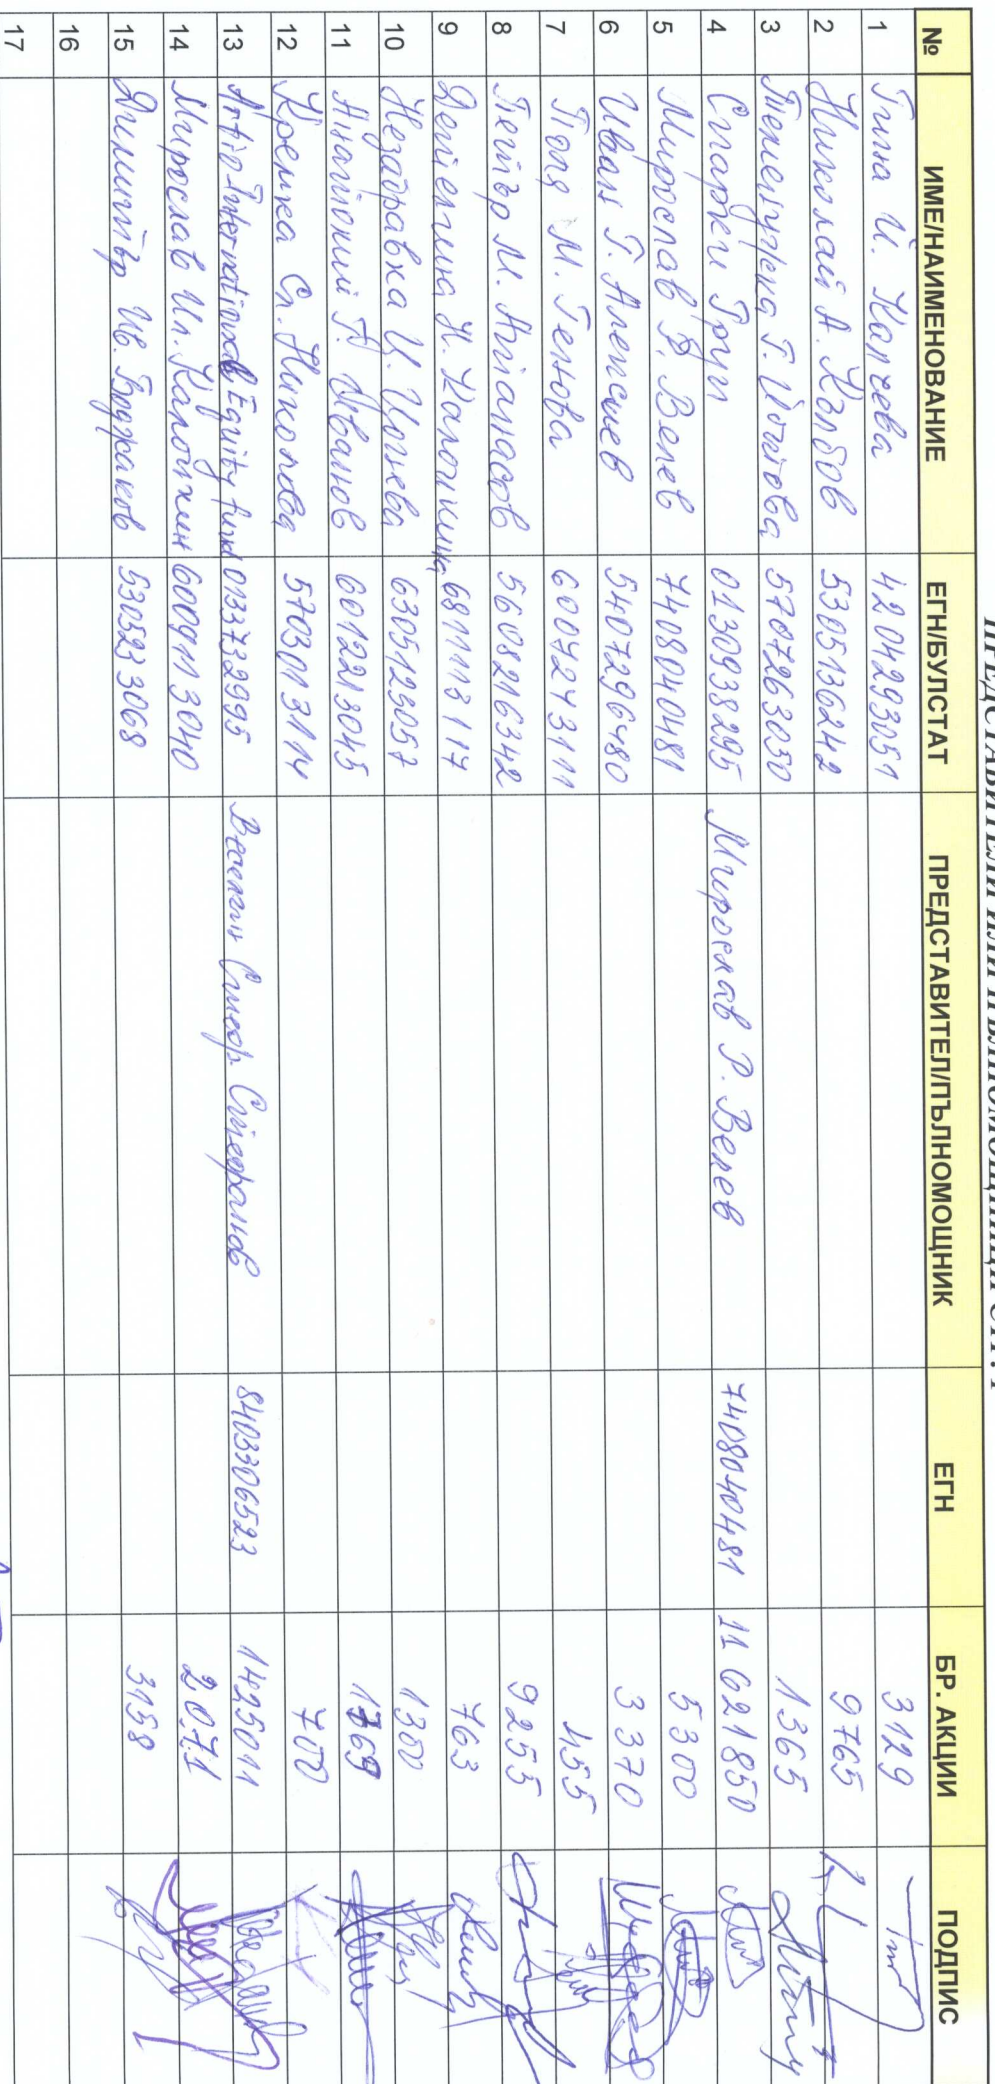 ПРЕДСТАВИТЕЛИ ИЛИ ПЪЛНОМОЩНИЦИ СТР. 1
№ ИМЕ/НАИМЕНОВАНИЕ ЕГН/БУЛСТАТ ПРЕДСТАВИТЕЛ/ПЪЛНОМОЩНИК ЕГН БР. АКЦИИ ПОДПИС
1 Гина И. Калчева 4204293051 3129
2 Николай А. Кълбов 5305136242 9765
3 Теменужка Г. Йотова 5707263030 1365
4 Старки Груп 0130938295 Мирослав Р. Велев 7408040481 11621850
5 Мирослав Р. Велев 7408040481 5300
6 Иван Г. Алексиев 5407296480 3370
7 Поля М. Генова 6004243111 455
8 Петър М. Атанасов 5608216342 9255
9 Ангелина Н. Калошкина 6811113117 763
10 Незабравка Ц. Цонева 6305123057 1300
11 Антоний Г. Иванов 6012213045 1369
12 Кремка Сл. Николова 5703013114 700
13 Artio International Equity fund 0337332995 Веселин Стеф. Стефанов 8403306523 1425011
14 Мирослав Ил. Калошкин 6009113040 2071
15 Димитър Ив. Боджаков 5303233068 3158
16
17